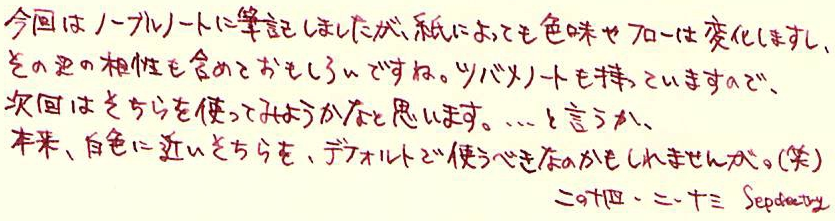 今回はノーブルノートに筆記しましたが、紙によっても色味やフローは変化しますし、
その辺の相性も含めておもしろいですね。ツバメノートも持っていますので、
次回はそちらを使ってみようかなと思います。…と言うか、
本来、白色に近いそちらを、デフォルトで使うべきなのかもしれませんが。(笑)
二〇十四・三・十三